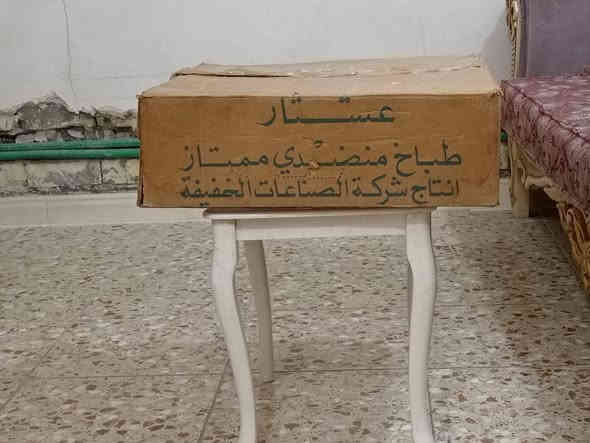 عستــار
طباخ منضدي ممتاز
انتاج شركة الصناعات الخفيفة